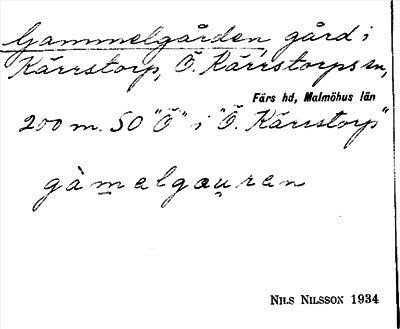 Gammelgården, gård i
Kärrstorp, Ö. Kärrstorps sn,
Färs hd, Malmöhus län
200 m. SO "Ö" i "Ö. Kärrstorp"
gàm̲elgau̲ran
NILS NILSSON 1934